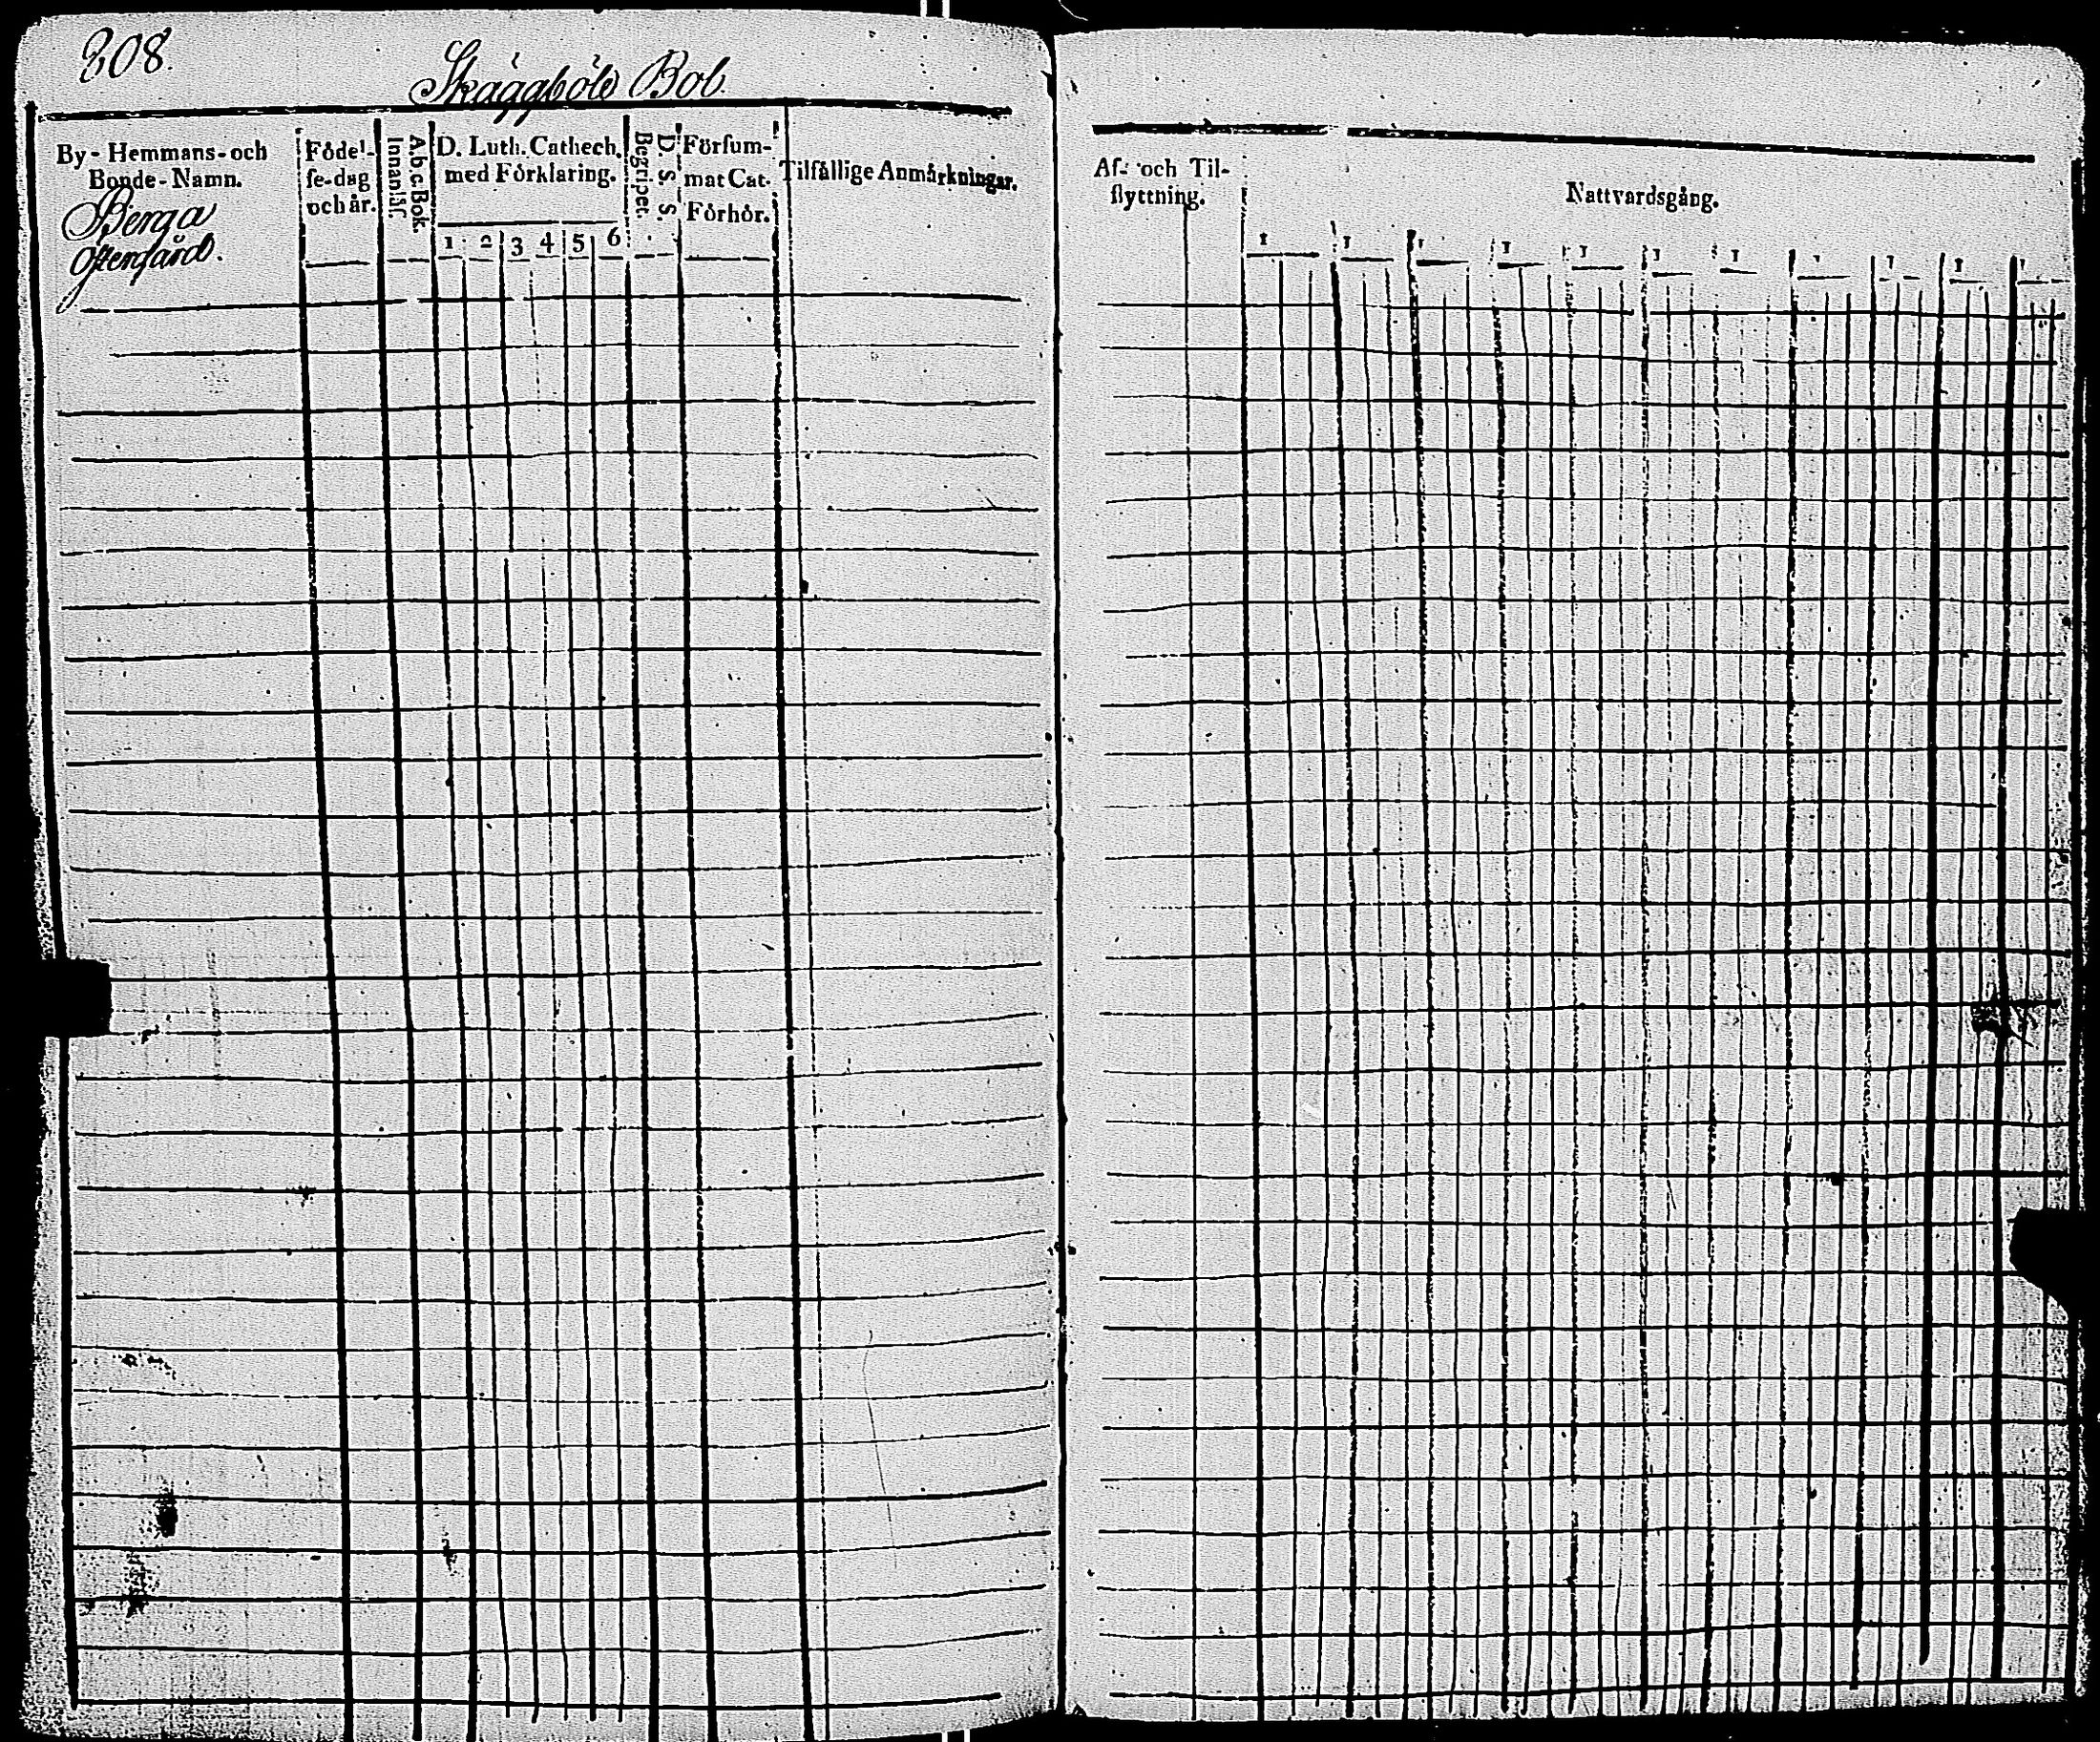 308.
Skäggböle Bol.
By-Hemmans-och
Bonde-Namn.
Berga
Östergård.
Födel-
se-dag
och år.
A.b.c.Bok.
Innanläs.
D. Luth. Cathech.
med Förklaring.
1 2 3 4 5 6
D. S. S.
Begriper.
Försum-
mat Cat.
Förhör.
Tilfällige Anmärkningar.
Af- och Til-
flyttning.
Nattvardsgång.
1 1 1 1 1 1 1 1 1 1 1